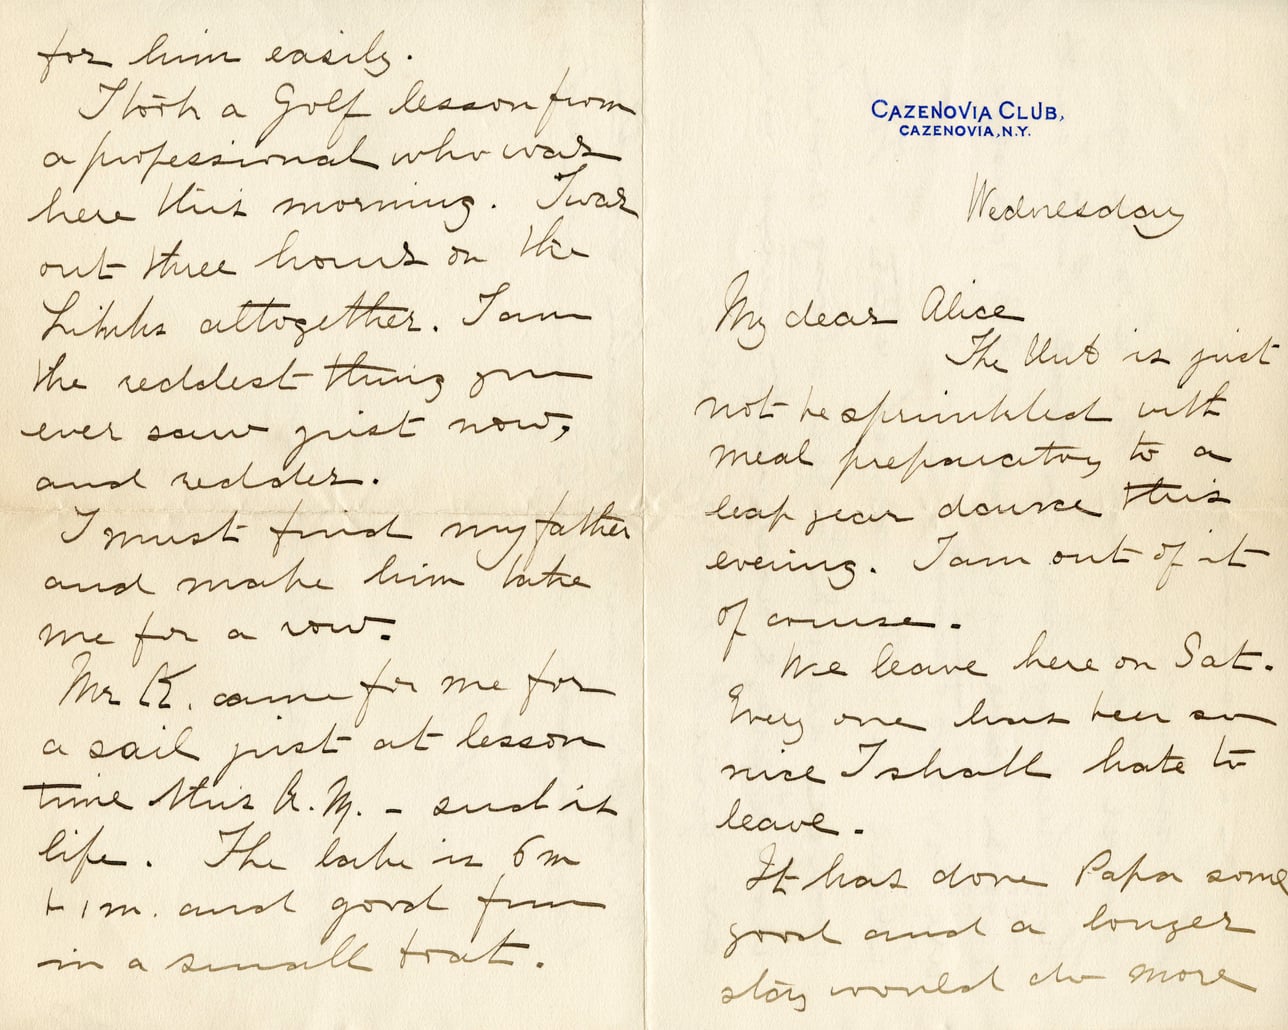 CAZENOVIA CLUB,
CAZENOVIA, N.Y.
Wednesday
My dear Alice
The Club is just
now besprinkled with
meal preparatory to a
leap year dance this
evening. I am out of it
of course.
We leave here on Sat.
Every one has been so
nice I shall hate to
leave.
It has done Papa some
good and a longer
stay would do more
for him easily.
I took a Golf lesson from
a professional who was
here this morning. I was
out three hours on the
Links altogether. I am
the reddest thing you
ever saw just now,
and redder.
I must find my father
and make him take
me for a row.
Mr K. came for me for
a sail just at lesson
time this A.M. - such is
life. The lake is 6 m
+ 1 m. and good fun
in a small boat.